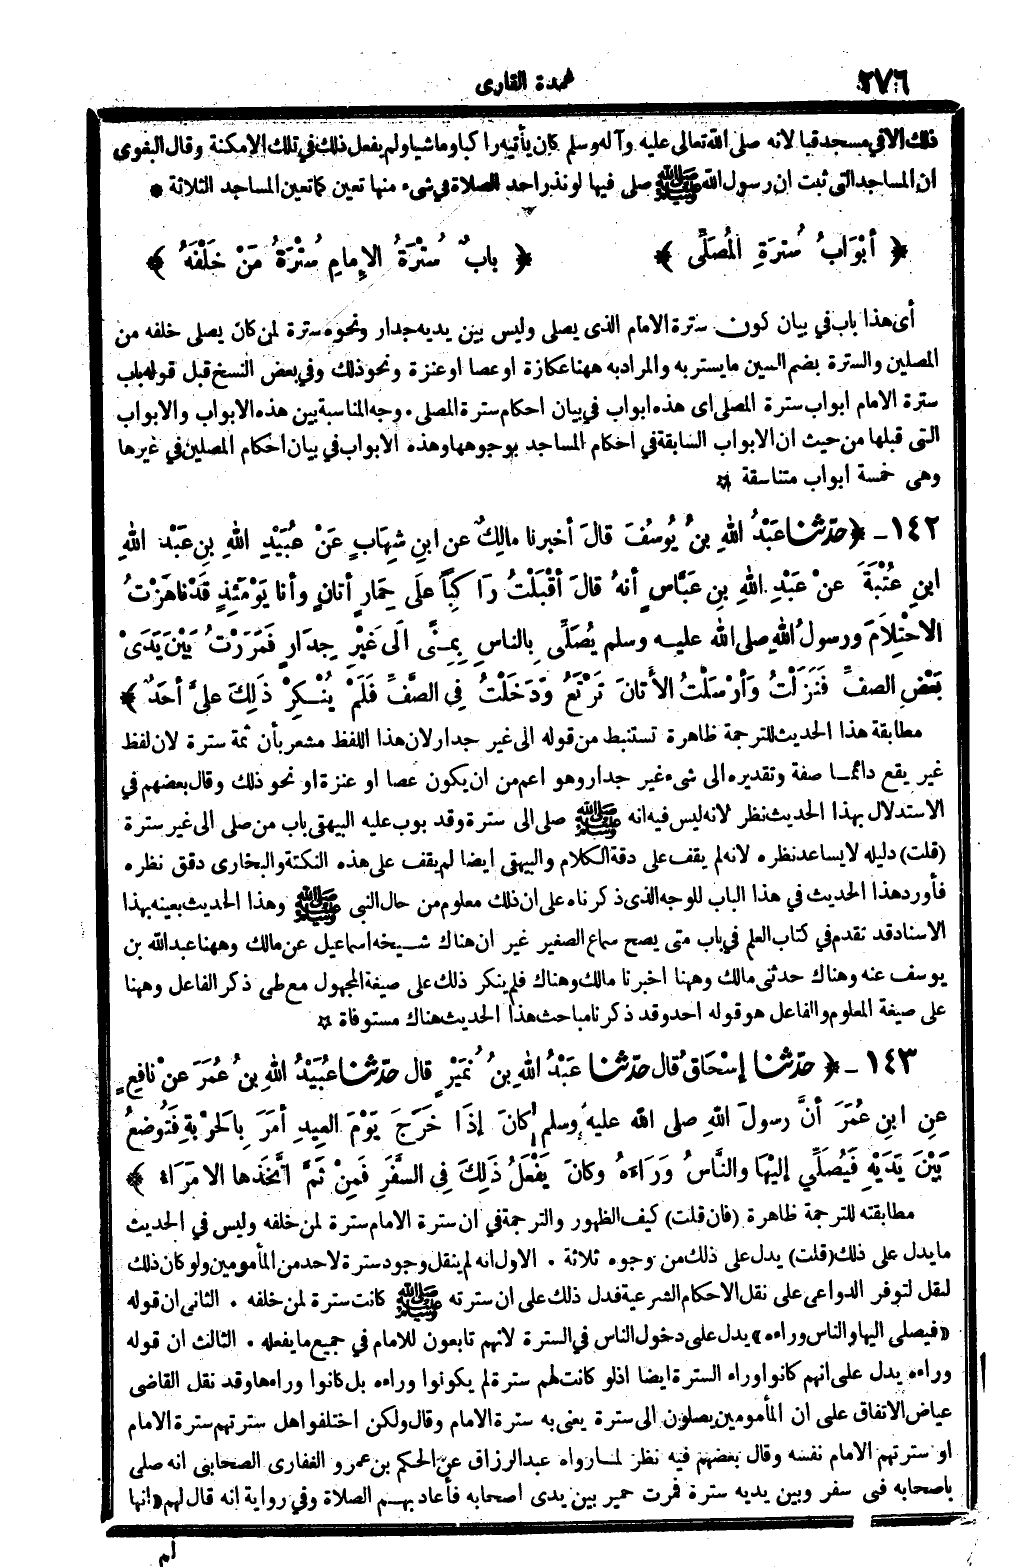 ٢٧٦
عمدة القارى
ذلك الا في مسجد قبا لانه صلى الله تعالى عليه وآله وسلم كان يأتيه راكبا وماشيا ولم يفعل ذلك في تلك الامكنة وقال البغوى
ان المساجد التى ثبت ان رسول الله ﷺ صلى فيها لو نذر احد الصلاة في شىء منها تعين كما تعين المساجد الثلاثة *
﴿ أبْوَابُ سُترَةِ المُصَلِّى ﴾ ﴿ بابٌ سُترَةُ الإِمامِ سُتْرَةُ مَنْ خَلْفَهُ ﴾
أى هذا باب في بيان كون سترة الامام الذى يصلى وليس بين يديه جدار ونحوه سترة لمن كان يصلى خلفه من
المصلين والسترة بضم السين ما يستر به والمراد به ههنا عكازة او عصا او عنزة ونحو ذلك وفي بعض النسخ قبل قوله باب
سترة الامام ابواب سترة المصلى اى هذه ابواب في بيان احكام سترة المصلى. وجه المناسبة بين هذه الابواب والابواب
التى قبلها من حيث ان الابواب السابقة في احكام المساجد بوجوهها وهذه الابواب في بيان احكام المصلين في غيرها
وهى خمسة ابواب متناسقة *
١٤٢ - ﴿ حدّثنا عَبْدُ اللهِ بنُ يُوسُفَ قالَ أخبرنا مالِكٌ عن ابنِ شِهَابٍ عَنْ عُبَيْدِ اللهِ بنِ عَبْدِ اللهِ
ابنِ عُتْبَةَ عنْ عَبْدِ اللهِ بنِ عَبَّاسٍ أنهُ قالَ أقْبَلْتُ رَاكِباً علَى حِمَارٍ أتانٍ وأنا يَوْمَئِذٍ قَدْ ناهَزْتُ
الاحْتِلاَمَ ورسولُ اللهِ صلى الله عليه وسلم يُصَلِّى بِالناسِ بِمِنًى الَى غَيْرِ جِدَارٍ فَمَرَرْتُ بَيْنَ يَدَىْ
بَعْضِ الصفِّ فَنَزَلْتُ وَأرْسَلْتُ الأَتانَ تَرْتَعُ وَدَخَلْتُ فِى الصَّفِّ فَلَمْ يُنْكِرْ ذَلِكَ علىَّ أحَدٌ ﴾
مطابقة هذا الحديث للترجمة ظاهرة تستنبط من قوله الى غير جدار لان هذا اللفظ مشعر بأن ثمة سترة لان لفظ
غير يقع دائما صفة وتقديره الى شىء غير جدار وهو اعم من ان يكون عصا او عنزة او نحو ذلك وقال بعضهم في
الاستدلال بهذا الحديث نظر لانه ليس فيه انه ﷺ صلى الى سترة وقد بوب عليه البيهقى باب من صلى الى غير سترة
(قلت) دليله لا يساعد نظره لانه لم يقف على دقة الكلام والبيهقى ايضا لم يقف على هذه النكتة والبخارى دقق نظره
فأورد هذا الحديث في هذا الباب للوجه الذى ذكرناه على ان ذلك معلوم من حال النبى ﷺ وهذا الحديث بعينه بهذا
الاسناد قد تقدم في كتاب العلم في باب متى يصح سماع الصغير غير ان هناك شيخه اسماعيل عن مالك وههنا عبد الله بن
يوسف عنه وهناك حدثنى مالك وههنا اخبرنا مالك وهناك فلم ينكر ذلك على صيغة المجهول مع طى ذكر الفاعل وههنا
على صيغة المعلوم والفاعل هو قوله احد وقد ذكرنا مباحث هذا الحديث هناك مستوفاة *
١٤٣ - ﴿ حدّثنا إسْحَاقُ قال حدّثنا عَبْدُ اللهِ بنُ نُمَيْرٍ قال حدّثنا عُبَيْدُ اللهِ بنُ عُمَرَ عنْ نافِعٍ
عنِ ابنِ عُمَرَ أنَّ رسولَ اللهِ صلى الله عليه وسلم كانَ إذَا خَرَجَ يَوْمَ العِيدِ أمَرَ بِالحَرْبةِ فَتُوضعُ
بَيْنَ يَدَيْهِ فَيُصَلِّي إليْهَا والنَّاسُ وَرَاءَهُ وكانَ يَفْعَلُ ذَلِكَ فِى السفَرِ فَمِنْ ثَمَّ اتَّخَذَها الامَرَاءُ ﴾
مطابقته للترجمة ظاهرة (فان قلت) كيف الظهور والترجمة في ان سترة الامام سترة لمن خلفه وليس في الحديث
ما يدل على ذلك (قلت) يدل على ذلك من وجوه ثلاثة . الاول انه لم ينقل وجود سترة لاحد من المأمومين ولو كان ذلك
لنقل لتوفر الدواعى على نقل الاحكام الشرعية فدل ذلك على ان سترته ﷺ كانت سترة لمن خلفه . الثانى ان قوله
«فيصلى اليها والناس وراءه» يدل على دخول الناس في السترة لانهم تابعون للامام في جميع ما يفعله . الثالث ان قوله
وراءه يدل على انهم كانوا وراء السترة ايضا اذ لو كانت لهم سترة لم يكونوا وراءه بل كانوا وراءها وقد نقل القاضى
عياض الاتفاق على ان المأمومين يصلون الى سترة يعنى به سترة الامام وقال ولكن اختلفوا هل سترتهم سترة الامام
او سترتهم الامام نفسه وقال بعضهم فيه نظر لما رواه عبد الرزاق عن الحكم بن عمرو الغفارى الصحابى انه صلى
باصحابه فى سفر وبين يديه سترة فمرت حمير بين يدى اصحابه فأعاد بهم الصلاة وفي رواية انه قال لهم «انها
لم